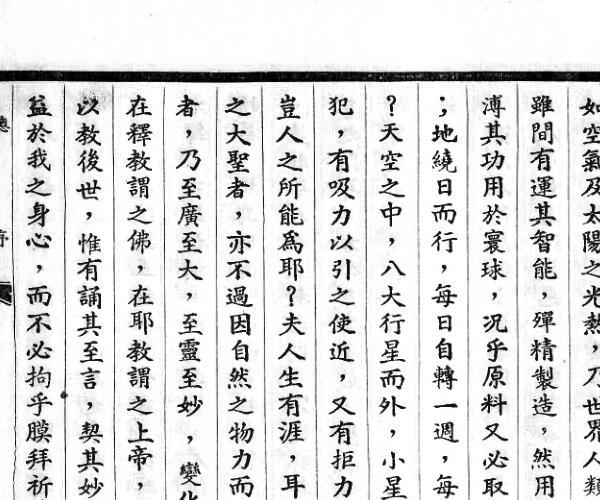 如空氣及太陽之光熱，乃世界人類
雖間有運其智能，殫精製造，然用
溥其功用於寰球，況乎原料又必取
；地繞日而行，每日自轉一週，每
？天空之中，八大行星而外，小星
犯，有吸力以引之使近，又有拒力
豈人之所能爲耶？夫人生有涯，耳
之大聖者，亦不過因自然之物力而
者，乃至廣至大，至靈至妙，變化
在釋教謂之佛，在耶教謂之上帝，
以教後世，惟有誦其至言，契其妙
益於我之身心，而不必拘乎膜拜祈
序